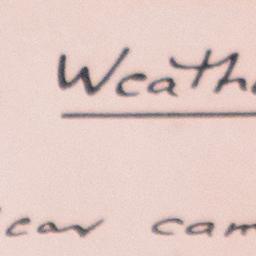 Weath
car cam